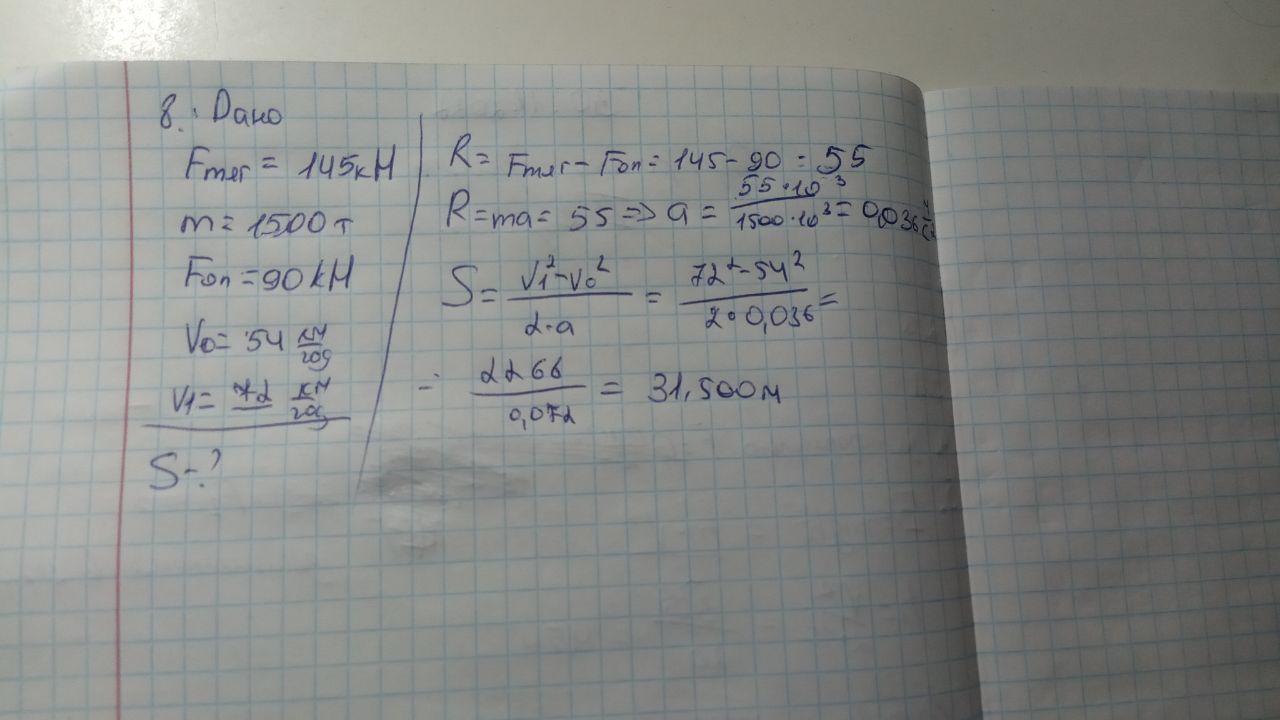 8. Дано
Fтяг = 145кН
m = 1500т
Fоп = 90кН
V0 = 54 км/год
V1 = 72 км/год
S - ?
R = Fтяг - Fоп = 145 - 90 = 55
R = ma = 55 => a = 55·10³/1500·10³ = 0,036
S = V1² - V0²/2·a = 72² - 54²/2·0,036 =
= 2266/0,072 = 31,500м